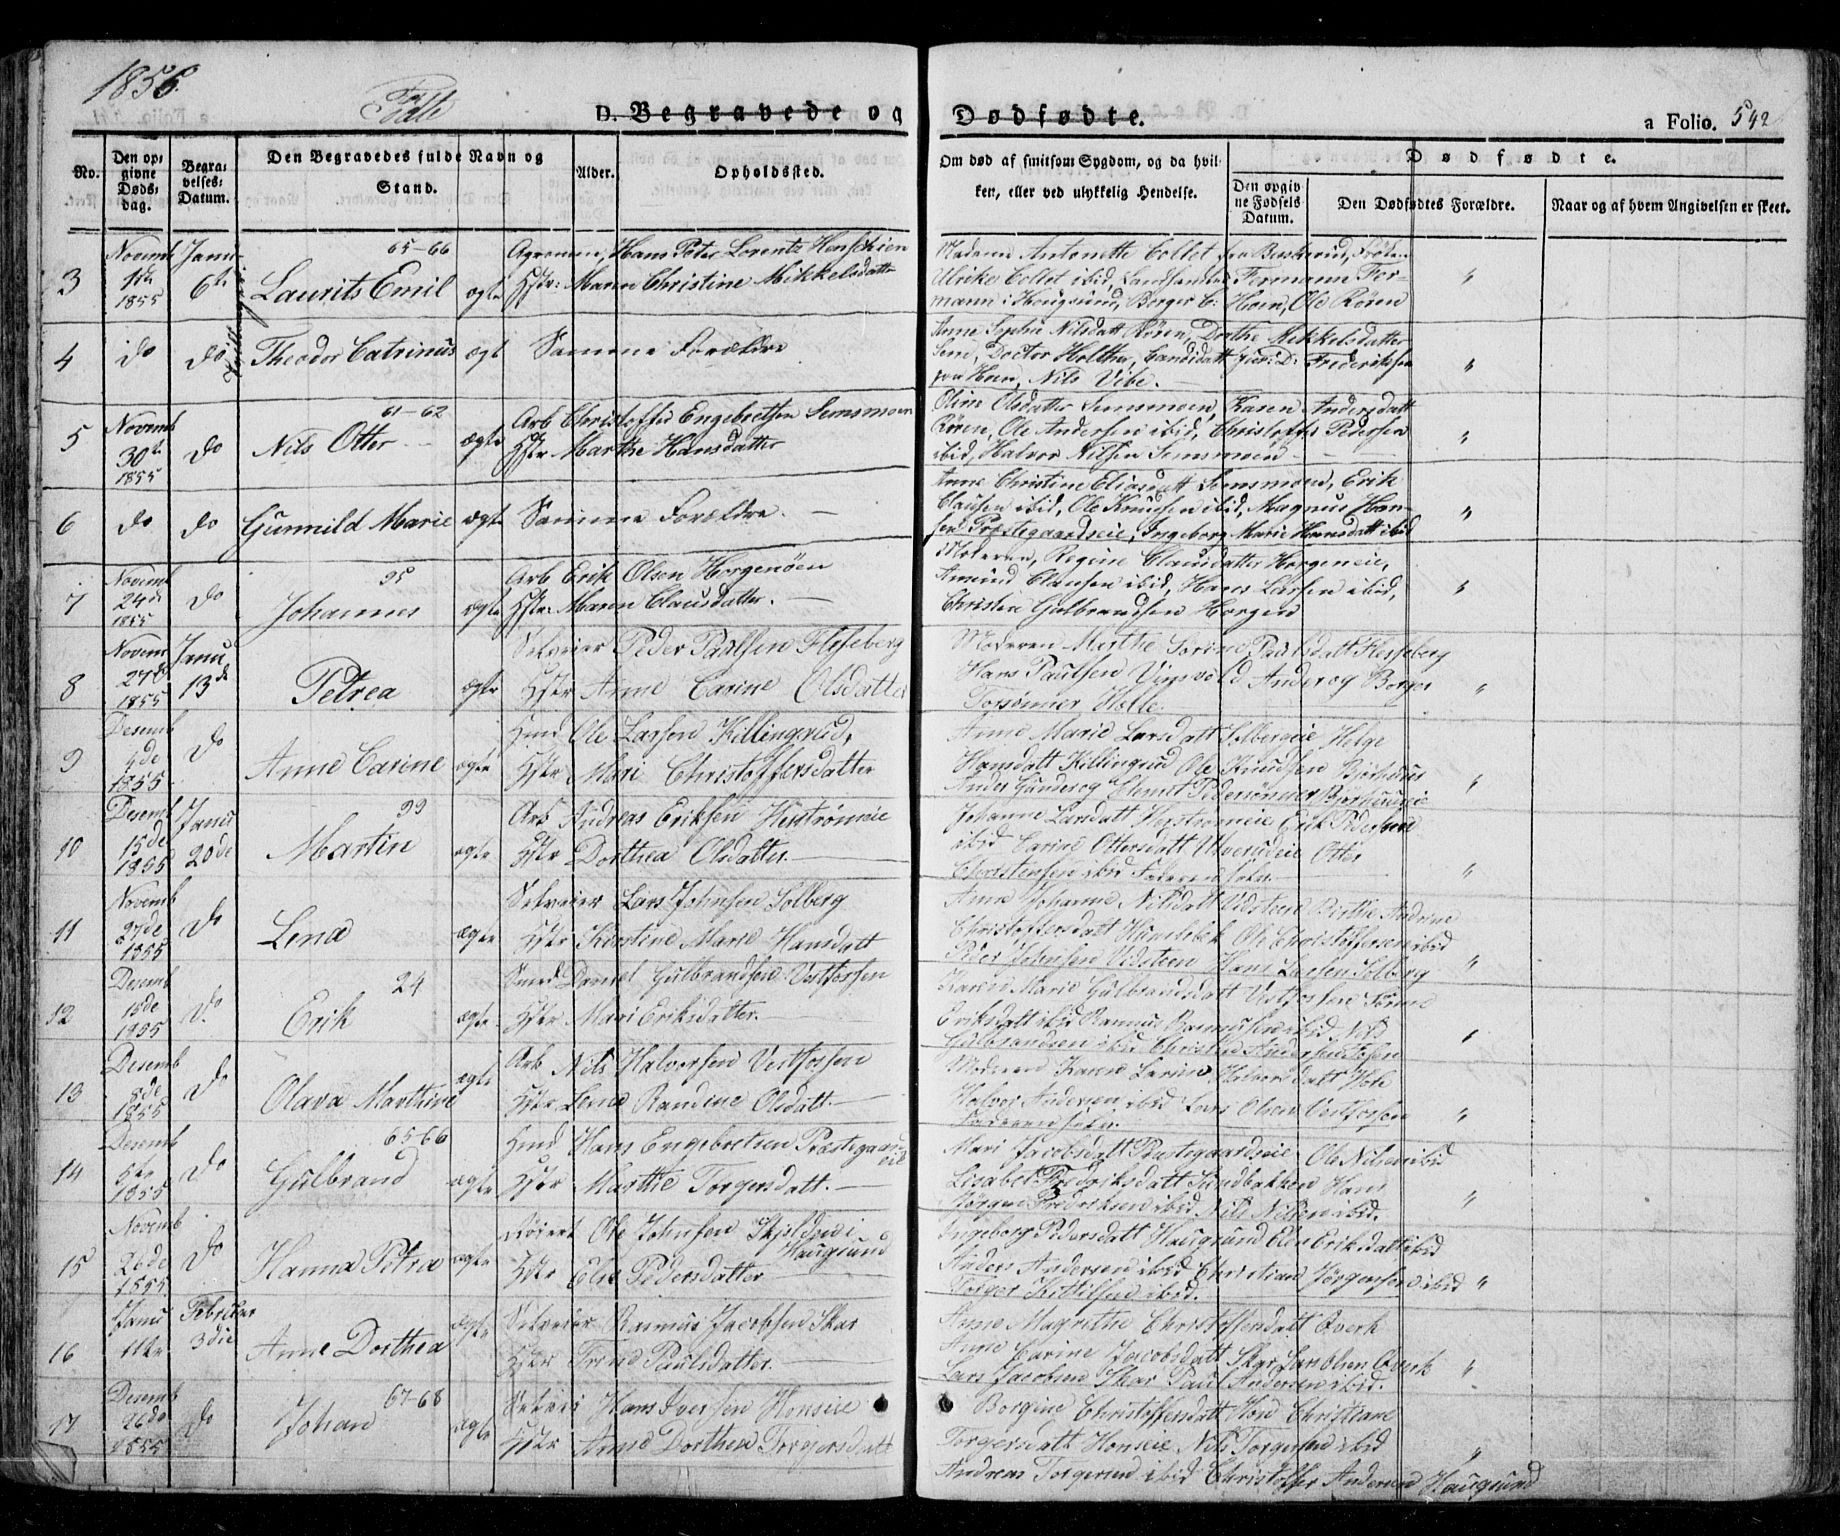 1856.
Fødte
D. Begravede og
Dødfødte.
a Folio. 542
No.
Den opgivne Dødsdag.
Begravelses: Datum.
Den Begravedes fulde Navn og Stand.
Alder.
Opholdssted.
Om død af smitsom Sygdom, og da hvilken, eller ved ulykkelig Hendelse.
Dødfødte.
Den opgivne Fødsels Datum.
Den Dødfødtes Forældre.
Naar og af hvem Angivelsen er skeet.
3
Novemb 1855
Janu 6te
65-66
Laurits Emil
ægte
Hans Peter Lorentz Henschien
Hstr: Maren Christine Mikkelsdatter
Madame Antonette Collet fra Buskerud, Frøken
Ulrikke Collet ibid, Formann For-
mann i Hougsund, Borger C: Hoen, Ole Røren
"
4
do
do
Theodor Catrinus
ægt
Samme Forældre
Anne Sophie Nilsdatt Røren, Dorthe Mikkelsdatter
Seme, Doctor Holther, Candidatt Juri: D: Frederiksen
fra Hoen, Nils Vibe.
"
5
Novemb 30te 1855
do
61-62
Nils Otter
ægte
Arb Christoffer Engebretsen Semsmoen
Hstr Marthe Hansdatter
Oline Olsdatter Semsmoen, Karen Andersdatt
Røren, Ole Andersen ibid, Christoffer Pedersen
ibid, Halvor Nilsen Semsmoen
"
6
do
do
Gunnild Marie
ægte
Samme Forældre.
Anne Christine Eliasdatt Semsmoen, Erik
Clausen ibid, Ole Knudsen ibid, Magnus Han-
sen Præstegaardseie, Ingeborg Marie Hansdatt ibid
"
7
Novemb 24de 1855
do
95
Johannes
ægte
Arb Erik Olsen Horgenøen
Hstr: Maren Clausdatter.
Moderen, Regine Clausdatter Horgeneie,
Amund Clausen ibid, Hans Larsen ibid,
Christen Gulbrandsen Horgen
"
8
Novem 27de 1855
Janu 13de
Petrea
ægte
Selveier Peder Paulsen Flesseberg
Hstr Anne Carine Olsdatter
Moderen Marthe Sorine Paulsdatt Flesseberg
Hans Paulsen Anders og Borger
Torsønner Holle.
"
9
Desemb 1855
do
Anne Carine
ægte
Hmd Ole Larsen Killingrud,
Hstr Mari Christoffersdatter
Anne Marie Larsdatt Solbergeie Helge
Hansdatt Killingrud Ole Knudsen
"
10
Desemb 15de 1855
Janu 20de
99
Martin
ægte
Arb Andreas Eriksen
Hstr Dorthea Olsdatter.
Johanne Larsdatt Erik Pedersen
ibid Carine Ottersdatt Ulverudeie Otter
Christensen ibid Faderen selv.
"
11
Novemb 27de 1855
do
Lena
ægte
Selveier Lars Johnsen Solberg
Hstr Kirstine Marie Hansdatt
Anne Johanne Nilsdatt Vidsteen Birthe Andrine
Christoffersdatt Ole Christoffersen ibid
Peder Johnsen Vidsteen Hans Larsen Solberg
"
12
Desemb 15de 1855
do
24
Erik
ægte
Smed Daniel Gulbrandsen Vestfossen
Hstr Mari Eriksdatter.
Karen Marie Gulbrandsdatt Vestfossen
Eriksdatt ibid Rasmus Rasmussen ibid Nils
Gulbrandsen ibid Christen Andersen Fossen
"
13
Desemb 8de 1855
do
Olava Marthine
ægte
Arb Nils Halvorsen Vestfossen
Hstr Lena Randine Olsdatt
Moderen Karen Larine Halvorsdatt
Halvor Andersen ibid Lars Olsen Vestfossen
Faderen selv.
"
14
Desemb 5te 1855
do
65-66
Gulbrand
ægte
Hmd Hans Engebretsen Præstegaardseie
Hstr Marthe Torgersdatt.
Mari Jacobsdatt Præstegaardseie Ole Nilsen ibid
Lisabet Fredriksdatt Sundbakken Hans
Jørgen Fredriksen ibid Nils Nilsen ibid.
"
15
Novemb 26de 1855
do
Hanna Petra
ægte
Ole Johnsen i Haugsund
Hstr Else Pedersdatter
Ingeborg Pedersdatt Haugsund Elen Eriksdatt ibid
Anders Andersen ibid Christian Jørgensen ibid
Torger Kittilsen ibid.
"
16
Janu 11te
Februar 3die
Anne Dorthea
ægte
Selveier Rasmus Jacobsen Skar
Hstr Trine Paulsdatter.
Anne Magrethe Christoffersdatt Qværk
Anne Carine Jacobsdatt Skar
Lars Jacobsen Skar Paul Andersen ibid.
"
17
Desemb 26de 1855
do
67-68
Johan
ægte
Selvei Hans Iversen Honseie
Hstr Anne Dorthea Torgersdatt
Borgine Christoffersdatt Christiane
Torgersdatt Honseie Nils Torgersen ibid
Andreas Torgersen ibid Christoffer Andersen Haugsund
"